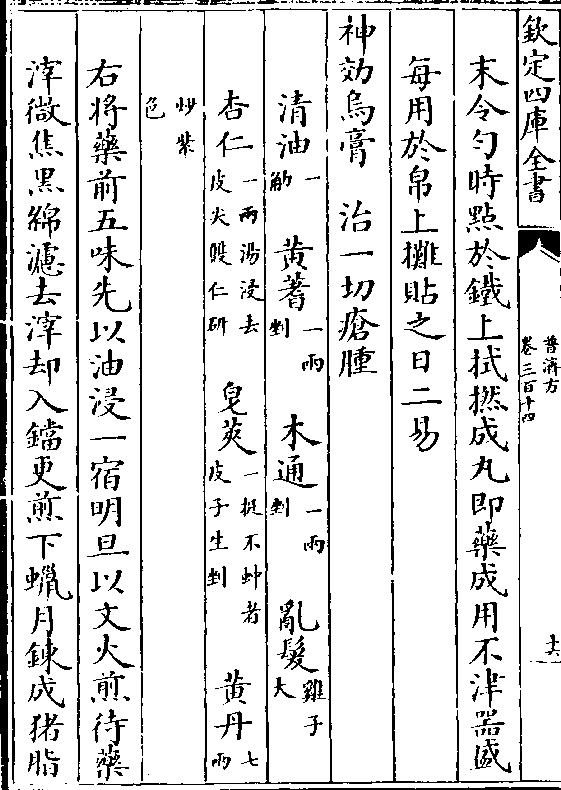 欽定四庫全書
普濟方
卷三百十四
十六
末令勻時點於鐵上拭撚成丸即藥成用不津器盛
每用於帛上攤貼之日二易
神効烏膏　治一切瘡腫
清油一觔　黃蓍一兩剉　木通一兩剉　亂髮雞子大
杏仁一兩湯浸去皮尖雙仁研　皂莢一挺不蚛者皮子生剉　黃丹七兩
炒紫色
右將藥前五味先以油浸一宿明旦以文火煎待藥
滓微焦黒綿濾去滓却入鐺更煎下蠟月鍊成猪脂